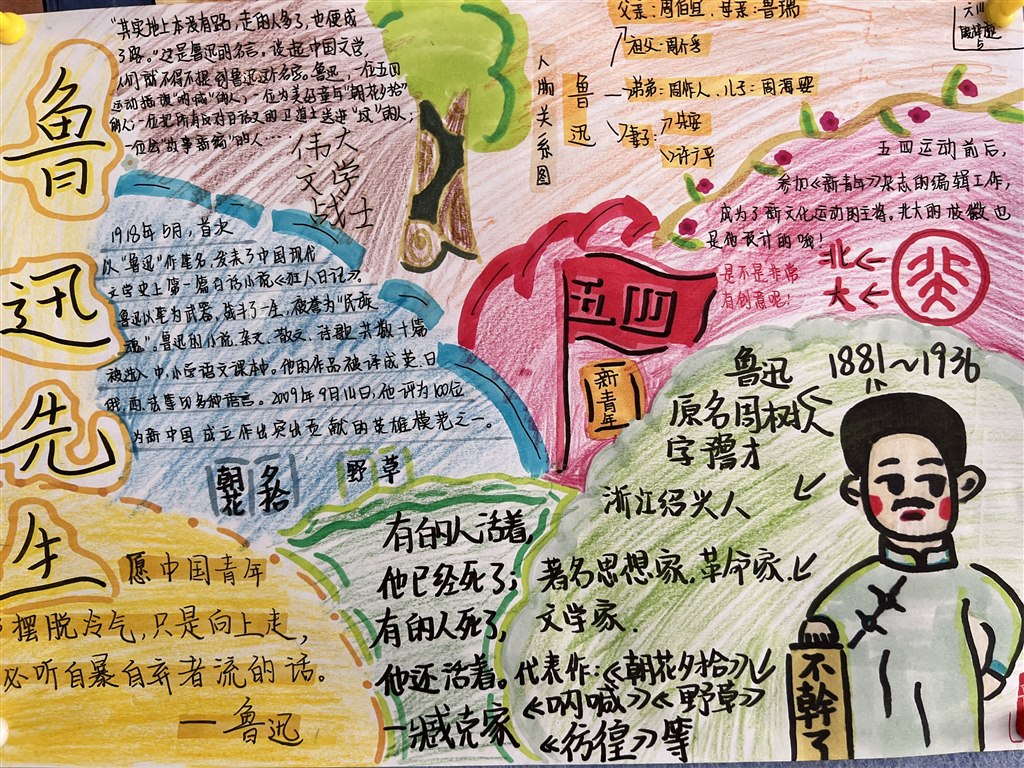 鲁
迅
先
生
"其实地上本没有路,走的人多了,也便成
了路。"这是鲁迅的名言。谈起中国文学,
人们就不得不提到鲁迅这个名字。鲁迅,一位五四
运动摇旗"呐喊"的人,一位为美好童年"朝花夕拾"
的人;一位把所有反对白话文的卫道士送进"坟"的人;
一位会"故事新编"的人……
伟大
文学
战士
人物关系图
鲁
迅
父亲:周伯宜、母亲:鲁瑞
祖父:周介孚
弟弟:周作人、儿子:周海婴
妻子:
朱安
许广平
五四运动前后,
参加《新青年》杂志的编辑工作,
成为了新文化运动的主将。北大的校徽也
是他设计的哦!
是不是非常
有创意呢!
北
大
1918年5月,首次
以"鲁迅"作笔名,发表了中国现代
文学史上第一篇白话小说《狂人日记》。
鲁迅以笔为武器,战斗了一生,被誉为"民族
魂"。鲁迅的小说、杂文、散文、诗歌共数十篇
被选入中、小学语文课本中。他的作品被译成英、日
俄、西、法等50多种语言。2009年9月14日,他评为100位
为新中国成立作出突出贡献的英雄模范之一。
五四
新青年
朝花
夕拾
野草
鲁迅
1881~1936
原名周树人
字豫才
浙江绍兴人
著名思想家、革命家、
文学家.
代表作:《朝花夕拾》
《呐喊》《野草》
《彷徨》等
有的人活着,
他已经死了;
有的人死了,
他还活着。
—臧克家
愿中国青年
摆脱冷气,只是向上走,
必听自暴自弃者流的话。
—鲁迅
不幹了